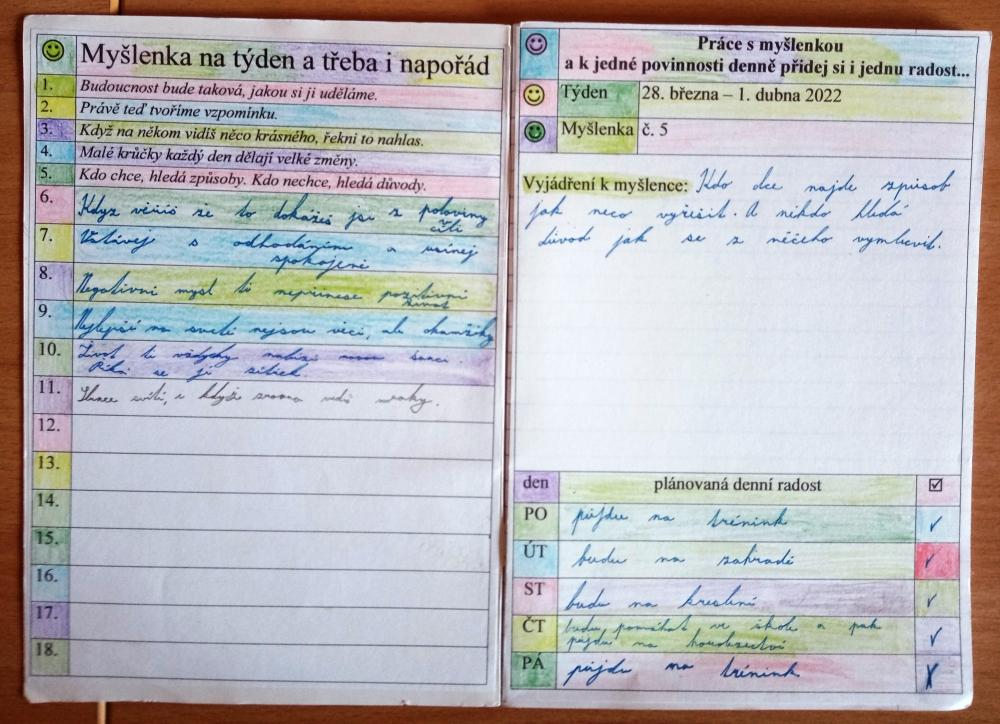 Myšlenka na týden a třeba i napořád
1. Budoucnost bude taková, jakou si ji uděláme.
2. Právě teď tvoříme vzpomínku.
3. Když na někom vidíš něco krásného, řekni to nahlas.
4. Malé krůčky každý den dělají velké změny.
5. Kdo chce, hledá způsoby. Kdo nechce, hledá důvody.
6. Když věříš že to dokážeš jsi z poloviny
cíli
7. Vstávej s odhodláním a usínej
spokojeně
8. Negativní mysl ti nepřinese pozitivní
život
9. Nejlepší na světě nejsou věci, ale okamžiky
10. Život ti vždycky nabízí novou šanci.
Říká se jí zítřek.
11. Slunce svítí, i když zrovna vidíš mraky.
12.
13.
14.
15.
16.
17.
18.
Práce s myšlenkou
a k jedné povinnosti denně přidej si i jednu radost...
Týden 28. března – 1. dubna 2022
Myšlenka č. 5
Vyjádření k myšlence: Kdo chce najde způsob
jak neco vyřešit. A někdo hledá
důvod jak se z něčeho vymluvit.
den plánovaná denní radost ☑
PO půjdu na trénink ✓
ÚT budu na zahradě ✓
ST budu na kreslení ✓
ČT budu pomáhat ve škole a pak
půjdu na ✓
PÁ půjdu na trénink X